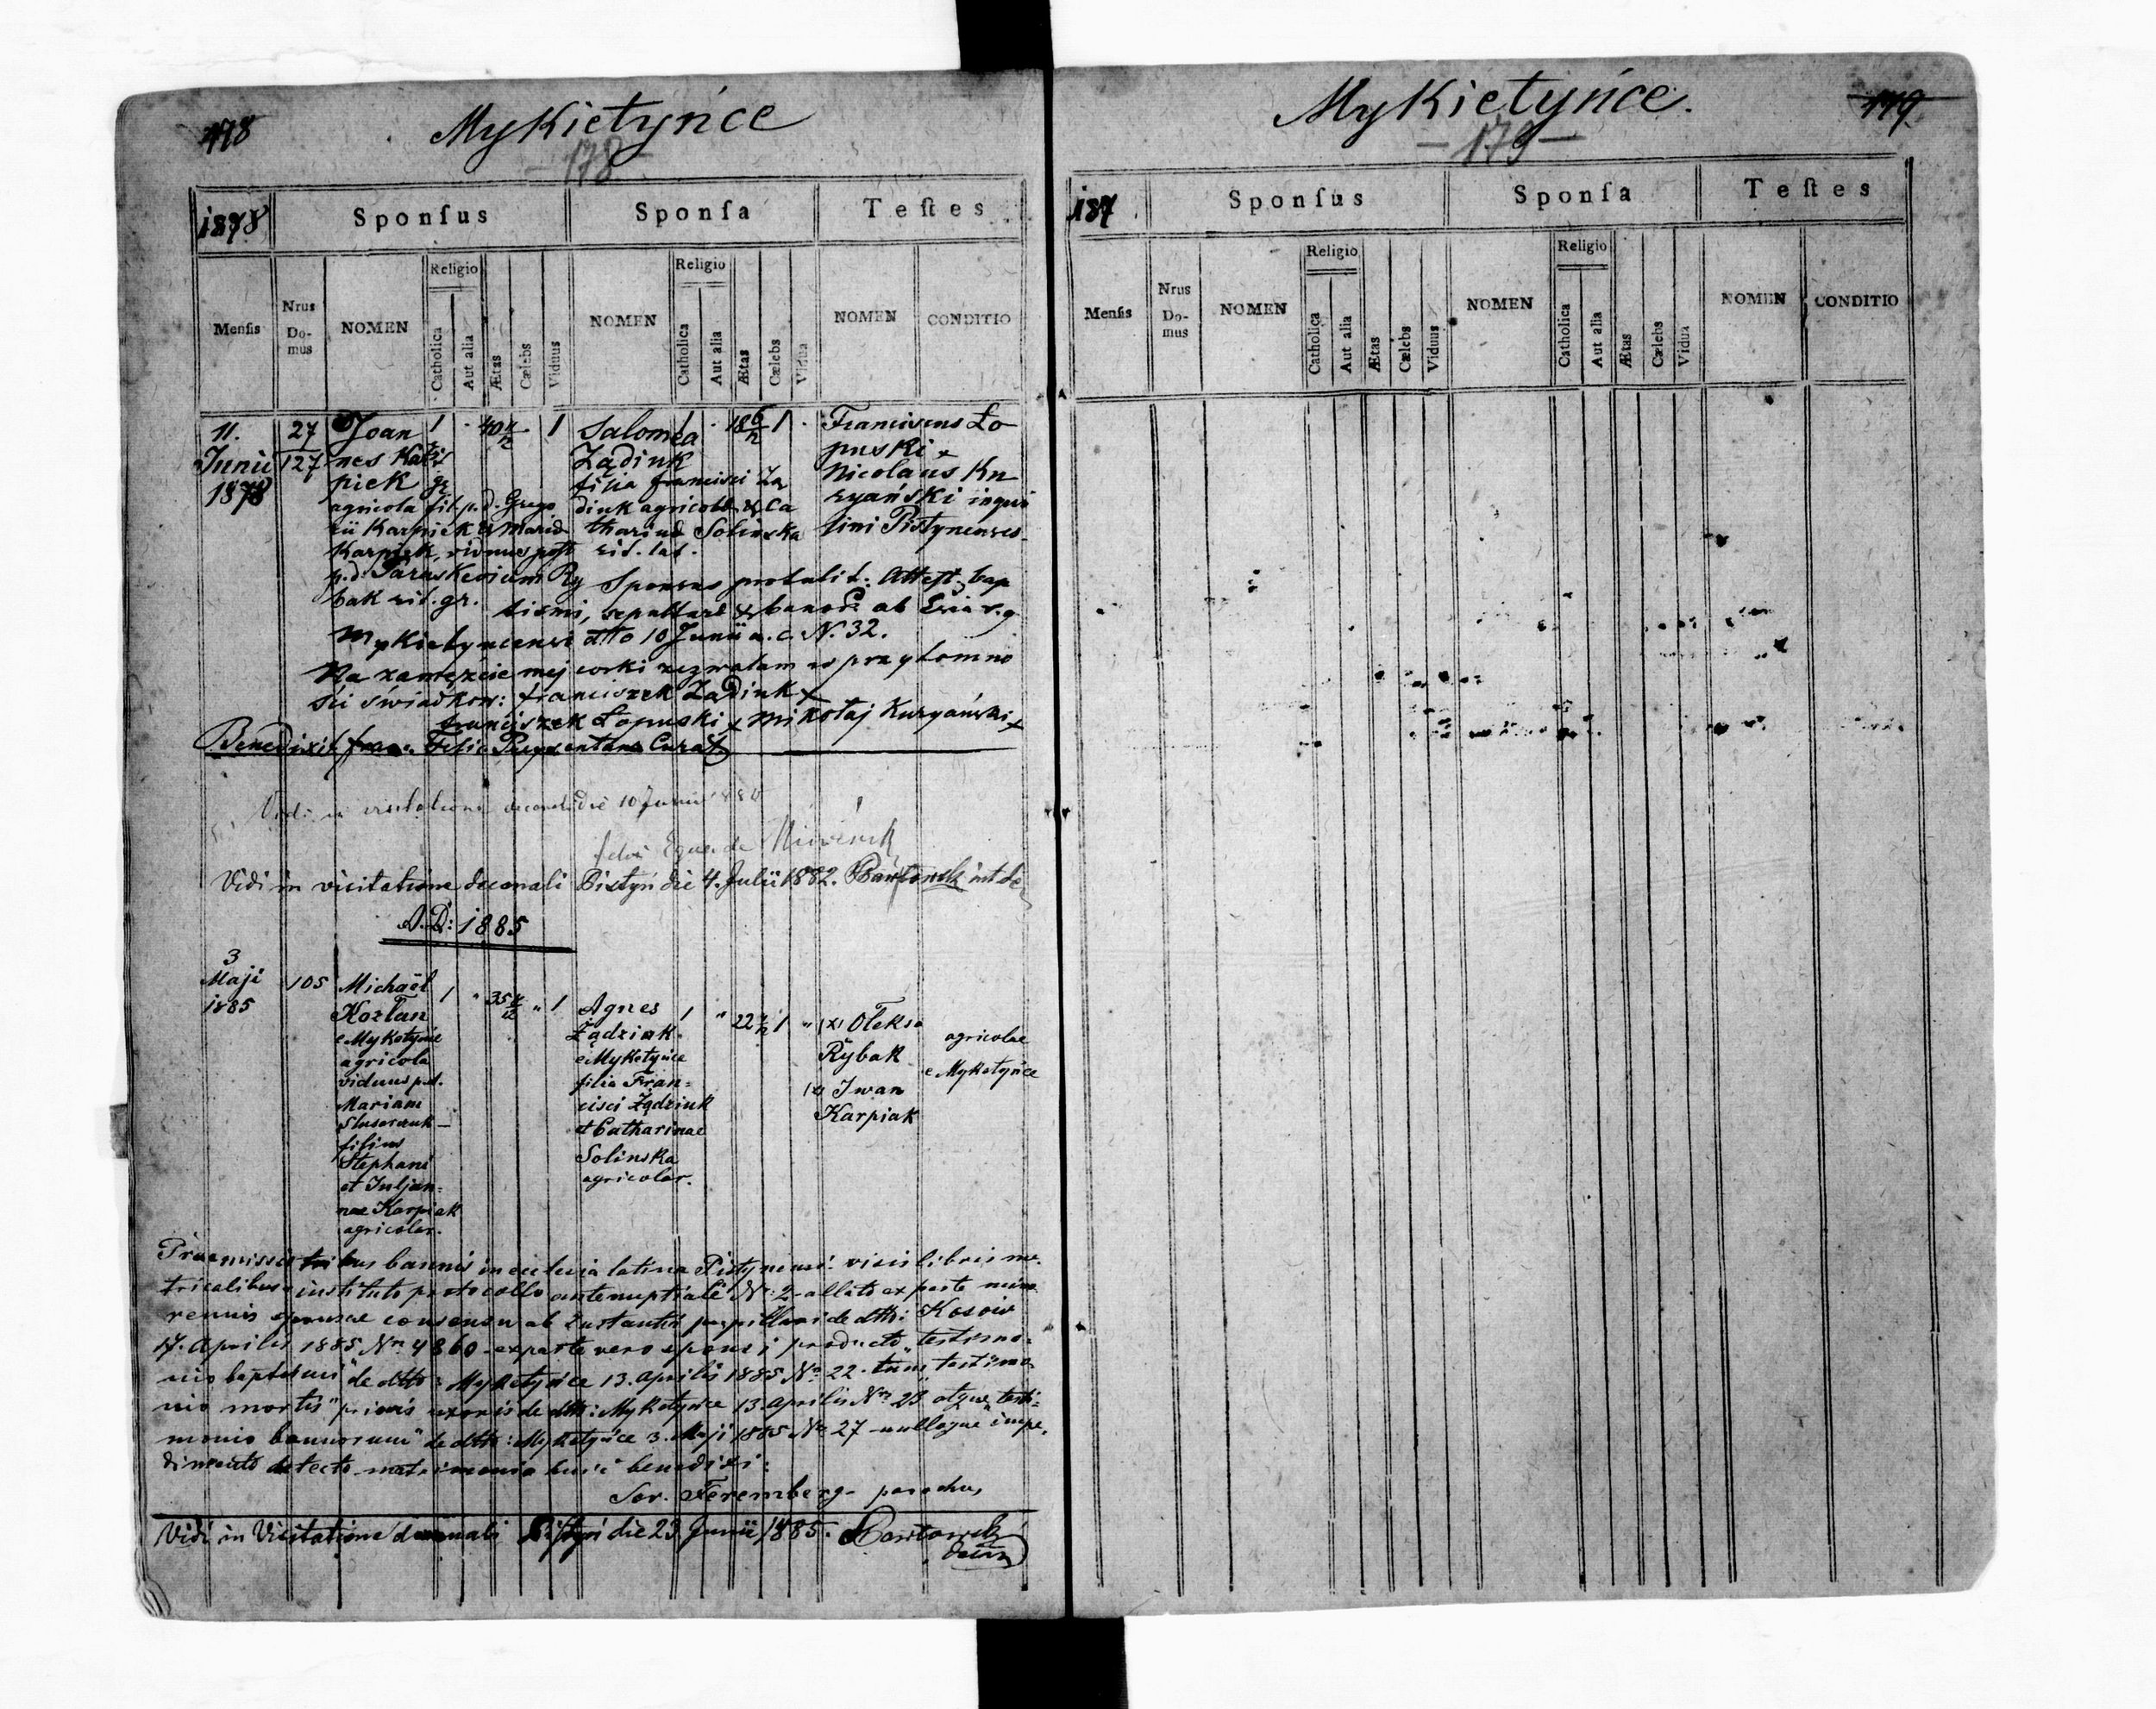 178
Mykietyńce
- 178 -
1878
Sponſus
Sponſa
Teſtes
Menſis
Nrus Domus
NOMEN
Religio
Catholica
Aut alia
Ætas
Cælebs
Viduus
NOMEN
Religio
Catholica
Aut alia
Ætas
Cælebs
Vidua
NOMEN
CONDITIO
11.
Junii
1878
27
127
Joan
nes Kar
piek
agricola fil. p. d. Grego
rii Karpiek & Mariæ
Karpiek, viduus post
p. d. Paraskeviam Ry
bak rit. gr.
rit
gr
1
40
1
Salomea
Ządiuk
filia Francisci Zą
diuk agricolæ & Ca
tharinæ Solinska
rit. lat.
1
18 6/12
1
Franciscus Ło
puski +
Nicolaus Ku
ryański inqui
lini Pistynenses
Sponsus protulit: Attest. bap
tismi, sepulturæ & bannor. ab r. g.
Mykietyncensi dtto 10 Junii a. c. N. 32.
Na zamęźcie mej corki zezwalam w przytomno
ści świadkow: Franciszek Ządiuk +
Franciszek Łopuski + Mikołaj Kuryański +
Benedixit Curat.
Vidi in visitatione decanali die 10 Junii 1880
Vidi in visitatione decanali Pistyń die 4. Julii 1882.
A.D: 1885
3
Maji
1885
105
Michaël
Kozłan
e Myketyńce
agricola
viduus p.d.
Mariam
filius
Stephani
et Juljan=
nae Karpiak
agricolar.
1
"
35
"
1
Agnes
Żądziak
e Myketyńce
filia Fran=
cisci Żądziuk
et Catharinae
Solinska
agricolar.
1
"
22
1
"
(x) Oleksa
Rybak
(x) Iwan
Karpiak
agricolae
e Myketyńce
Praemissis tribus bannis in ecclesia latina Pistynensi: visis libris me=
tricalibus instituto protocollo antenuptiali Nr: 2 - allato ex parte mino
rennis sponsae consensu ab pupillari de dtto: Kosów
17. Aprilis 1885 Nr. 4860 - ex parte vero sponsi producto "testimo=
nio baptismi" de dtto: Myketyńce 13. Aprilis 1885 Nr. 22. tum "testimo
nio mortis" prioris uxoris de dtto: Myketyńce 13. Aprilis Nr. 23 atque "testi=
monio bannorum" de dtto: Myketyńce 3. Maji 1885 Nr. 27 - nulloque impe=
dimento detecto matrimonio huic benedixi:
Feremberg - parochus
Vidi in Visitatione decanali Pistyń die 23 Junii 1885.
Mykietyńce.
179
- 179 -
187
Sponſus
Sponſa
Teſtes
Menſis
Nrus Domus
NOMEN
Religio
Catholica
Aut alia
Ætas
Cælebs
Viduus
NOMEN
Religio
Catholica
Aut alia
Ætas
Cælebs
Vidua
NOMEN
CONDITIO